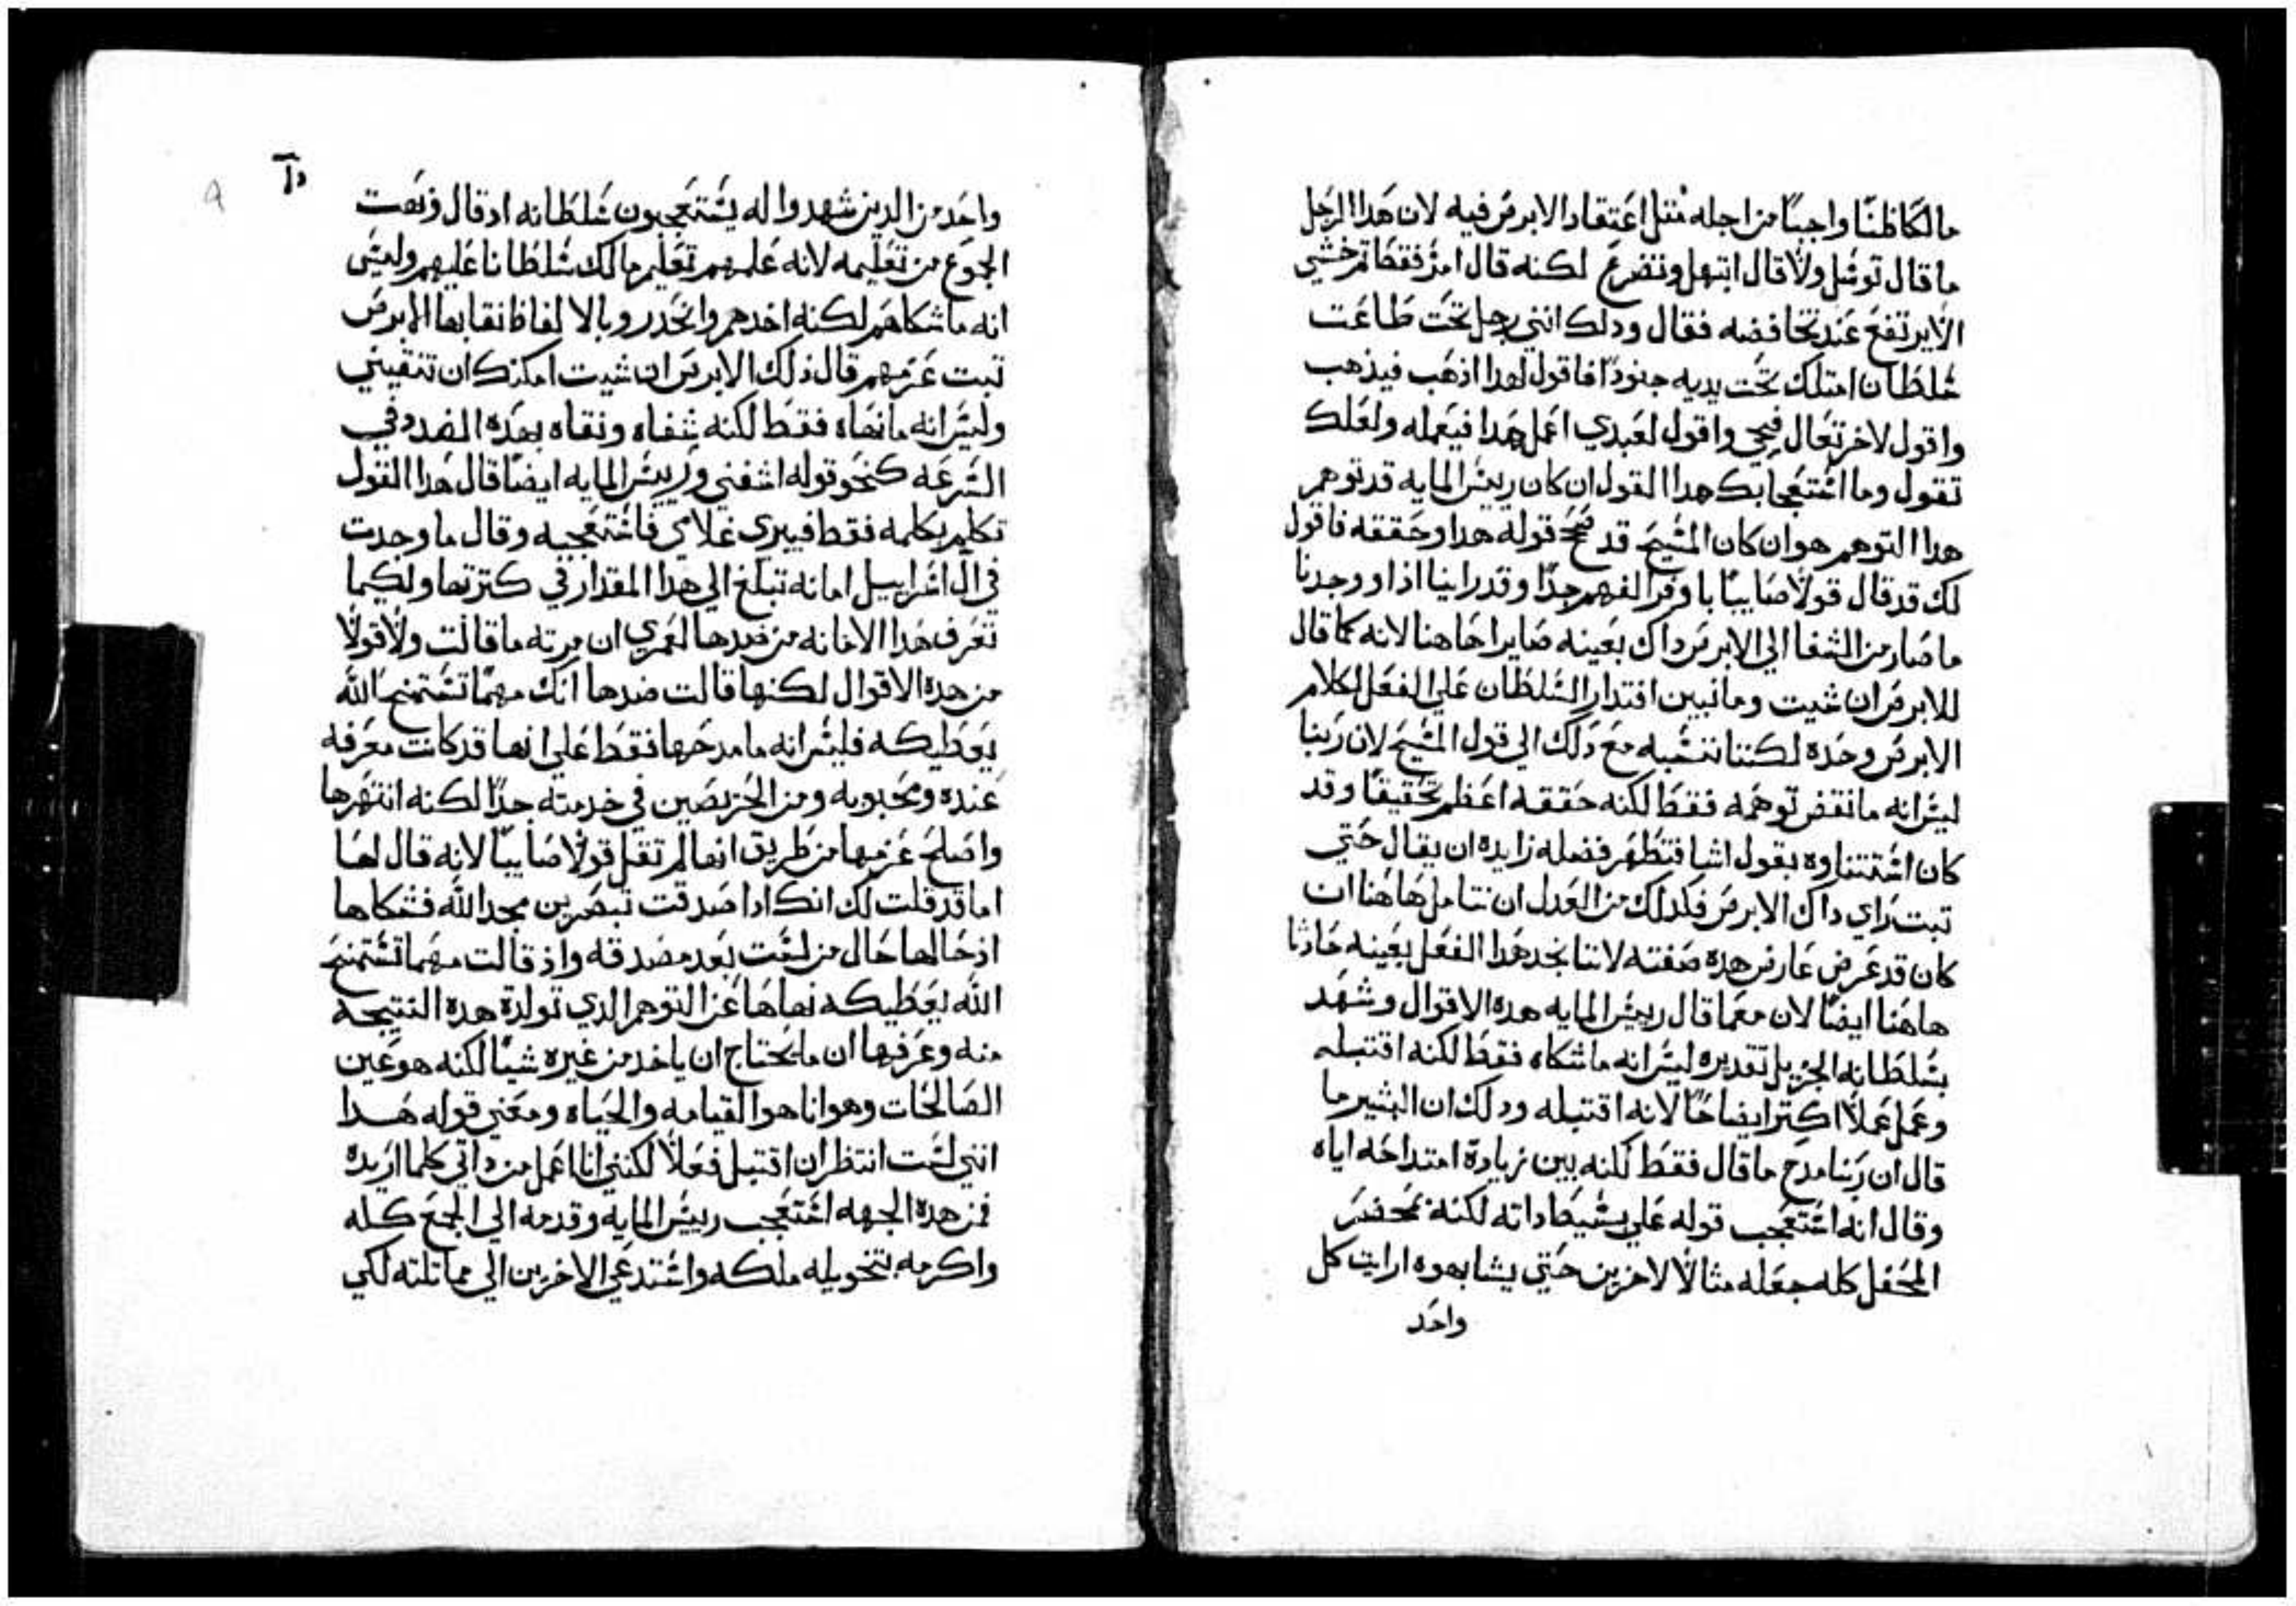 مالكا ظنا واجبا من اجله مثل اعتقاد الابرص فيه لان هدا الرجل
ما قال توسل ولا قال ابتهل وتضرع لكنه قال امر فقط ثم خشي
الا يرتفع عند تخافضه فقال ودلك انني رجل تحت طاعت
سلطان امتلك تحت يديه جنودا فاقول لهدا اذهب فيذهب
واقول لاخر تعال فيجي واقول لعبدي اعمل هدا فيعمله ولعلك
تقول وما استعجابك هدا القول ان كان رييس المايه قد توهم
هدا التوهم هو ان كان المسيح قد صحح قوله هدا وحققه فاقول
لك قد قال قولا صاييا با وفر الفهم جدا وقد راينا اذا ووجدنا
ما صار من الشفا الي الابرص داك بعينه صايرا هاهنا لانه كما قال
للابرص ان شيت وما نبين اقتدار السلطان علي الفعل لكلام
الابرص وحده لكننا ننسبه مع دلك الي قول المسيح لان ربنا
ليس انه ما نقض توهمه فقط لكنه حققه اعظم تحقيقا وقد
كان اشتثناوه بقول اشيا فتظهر فضله زايده ان يقال حتي
تبت راي داك الابرص فكدلك من العدل ان نتامل هاهنا ان
كان قد عرض عارض هده صفته لاننا نجد هدا الفعل بعينه حادثا
هاهنا ايضا لان معما قال رييس المايه هده الاقوال وشهد
بسلطانه الجزيل تقديره ليس انه ماشكاه فقط لكنه اقتبله
وعمل عملا اكتر ايضاحا لانه اقتبله ودلك ان البشير ما
قال ان ربنا مدح ما قال فقط لكنه بين زيادة امتداحه اياه
وقال انه استعجب قوله علي بسيط اداته لكنه بمحضر
المحفل كله جعله مثالا لاخرين حتي يشابهوه ارايت كل
واحد
واحد من الدين شهدوا له يستعجبون سلطانه اد قال وبهت
الجوع من تعليمه لانه علمهم تعليم مالك سلطانا عليهم وليس
انه ماشكاهم لكنه اخدهم وانحدر وبالالفاظ نقا بها الابرص
تبت عزمهم قال ذلك الابرص ان شيت امكنك ان تنقيني
وليس انه مانهاه فقط لكنه شفاه ونقاه بهده الضد وفي
السرعه كنحو قوله اشفني ورييس المايه ايضا قال هدا القول
تكلم بكلمه فقط فيبري غلامي فاستعجبه وقال ما وجدت
في ال اسراييل امانه تبلغ الي هدا المقدار في كترتها ولكيما
تعرف هدا الامانه من ضدها لعمري ان مرته ما قالت ولا قولا
من هده الاقوال لكنها قالت ضدها انك مهما تستمنح الله
يعطيكه فليس انه ما مدحها فقط علي انها قد كانت معرفه
عنده ومحبوبه ومن الحريصين في خدمته جدا لكنه انتهرها
واصلح عزمها من طريق انها لم تقل قولا صاييا لانه قال لها
اما قد قلت لك انك ادا صدقت تبصرين مجد الله فشكاها
اذ حالها حال من لست بعد مصدقه واذ قالت مهما تستمنح
الله يعطيكه نهاها عن التوهم الدي تولدة هده النتيجه
منه وعرفها ان ما يحتاج ان ياخد من غيره شيا لكنه هو عين
الصالحات وهو اناهو القيامه والحياه ومعني قوله هدا
انني لست انتظر ان اقتبل فعلا لكنني انا اعمل من داتي كلما اريده
فمن هده الجهه استعجب رييس المايه وقدمه الي الجمع كله
واكرمه بتخويله ملكه واستدعي الاخرين الي مماتلته لكي